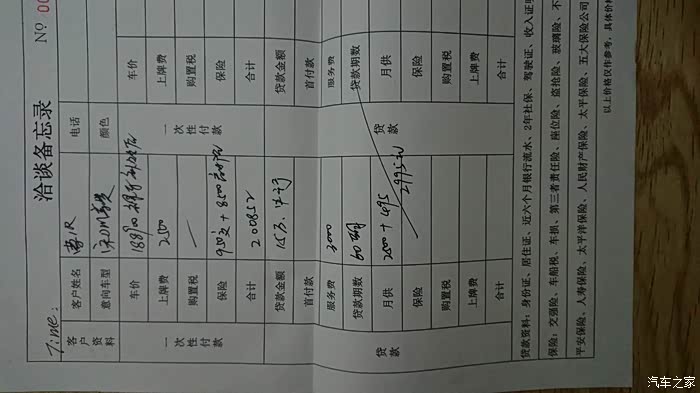 洽谈备忘录
No. 00
Time:
客户资料
客户姓名
电话
意向车型
颜色
一次性付款
车价 188900
车价
上牌费 2500
上牌费
购置税 —
购置税
保险
保险
合计 200852
合计
贷款
贷款金额
贷款金额
首付款
首付款
服务费 3000
服务费
贷款期数 60期
贷款期数
月供 2500+495
月供
保险
保险
购置税
购置税
上牌费
上牌费
合计
合计
贷款资料：身份证、居住证、近六个月银行流水、2年社保、驾驶证、收入证明
保险：交强险、车船税、车损、第三者责任险、座位险、盗抢险、玻璃险、不
平安保险、人寿保险、太平洋保险、人民财产保险、太平保险、五大保险公司
以上价格仅作参考，具体价格
汽车之家